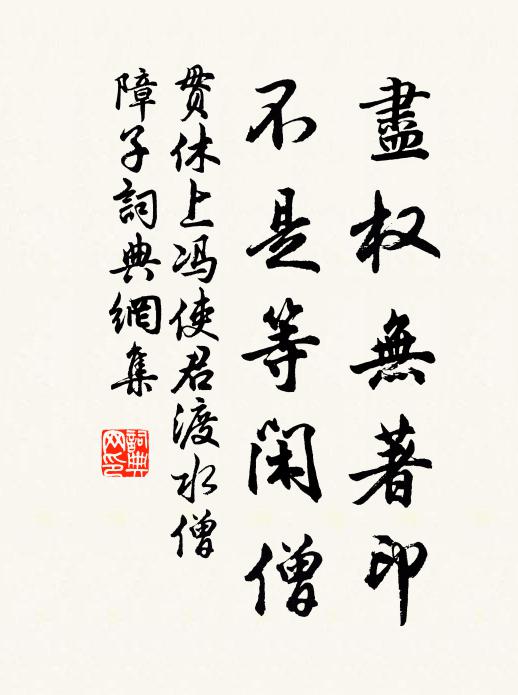 盡权無著印
不是等閑僧
贯休上冯使君渡水僧
障子詞典網集
詞典
网印